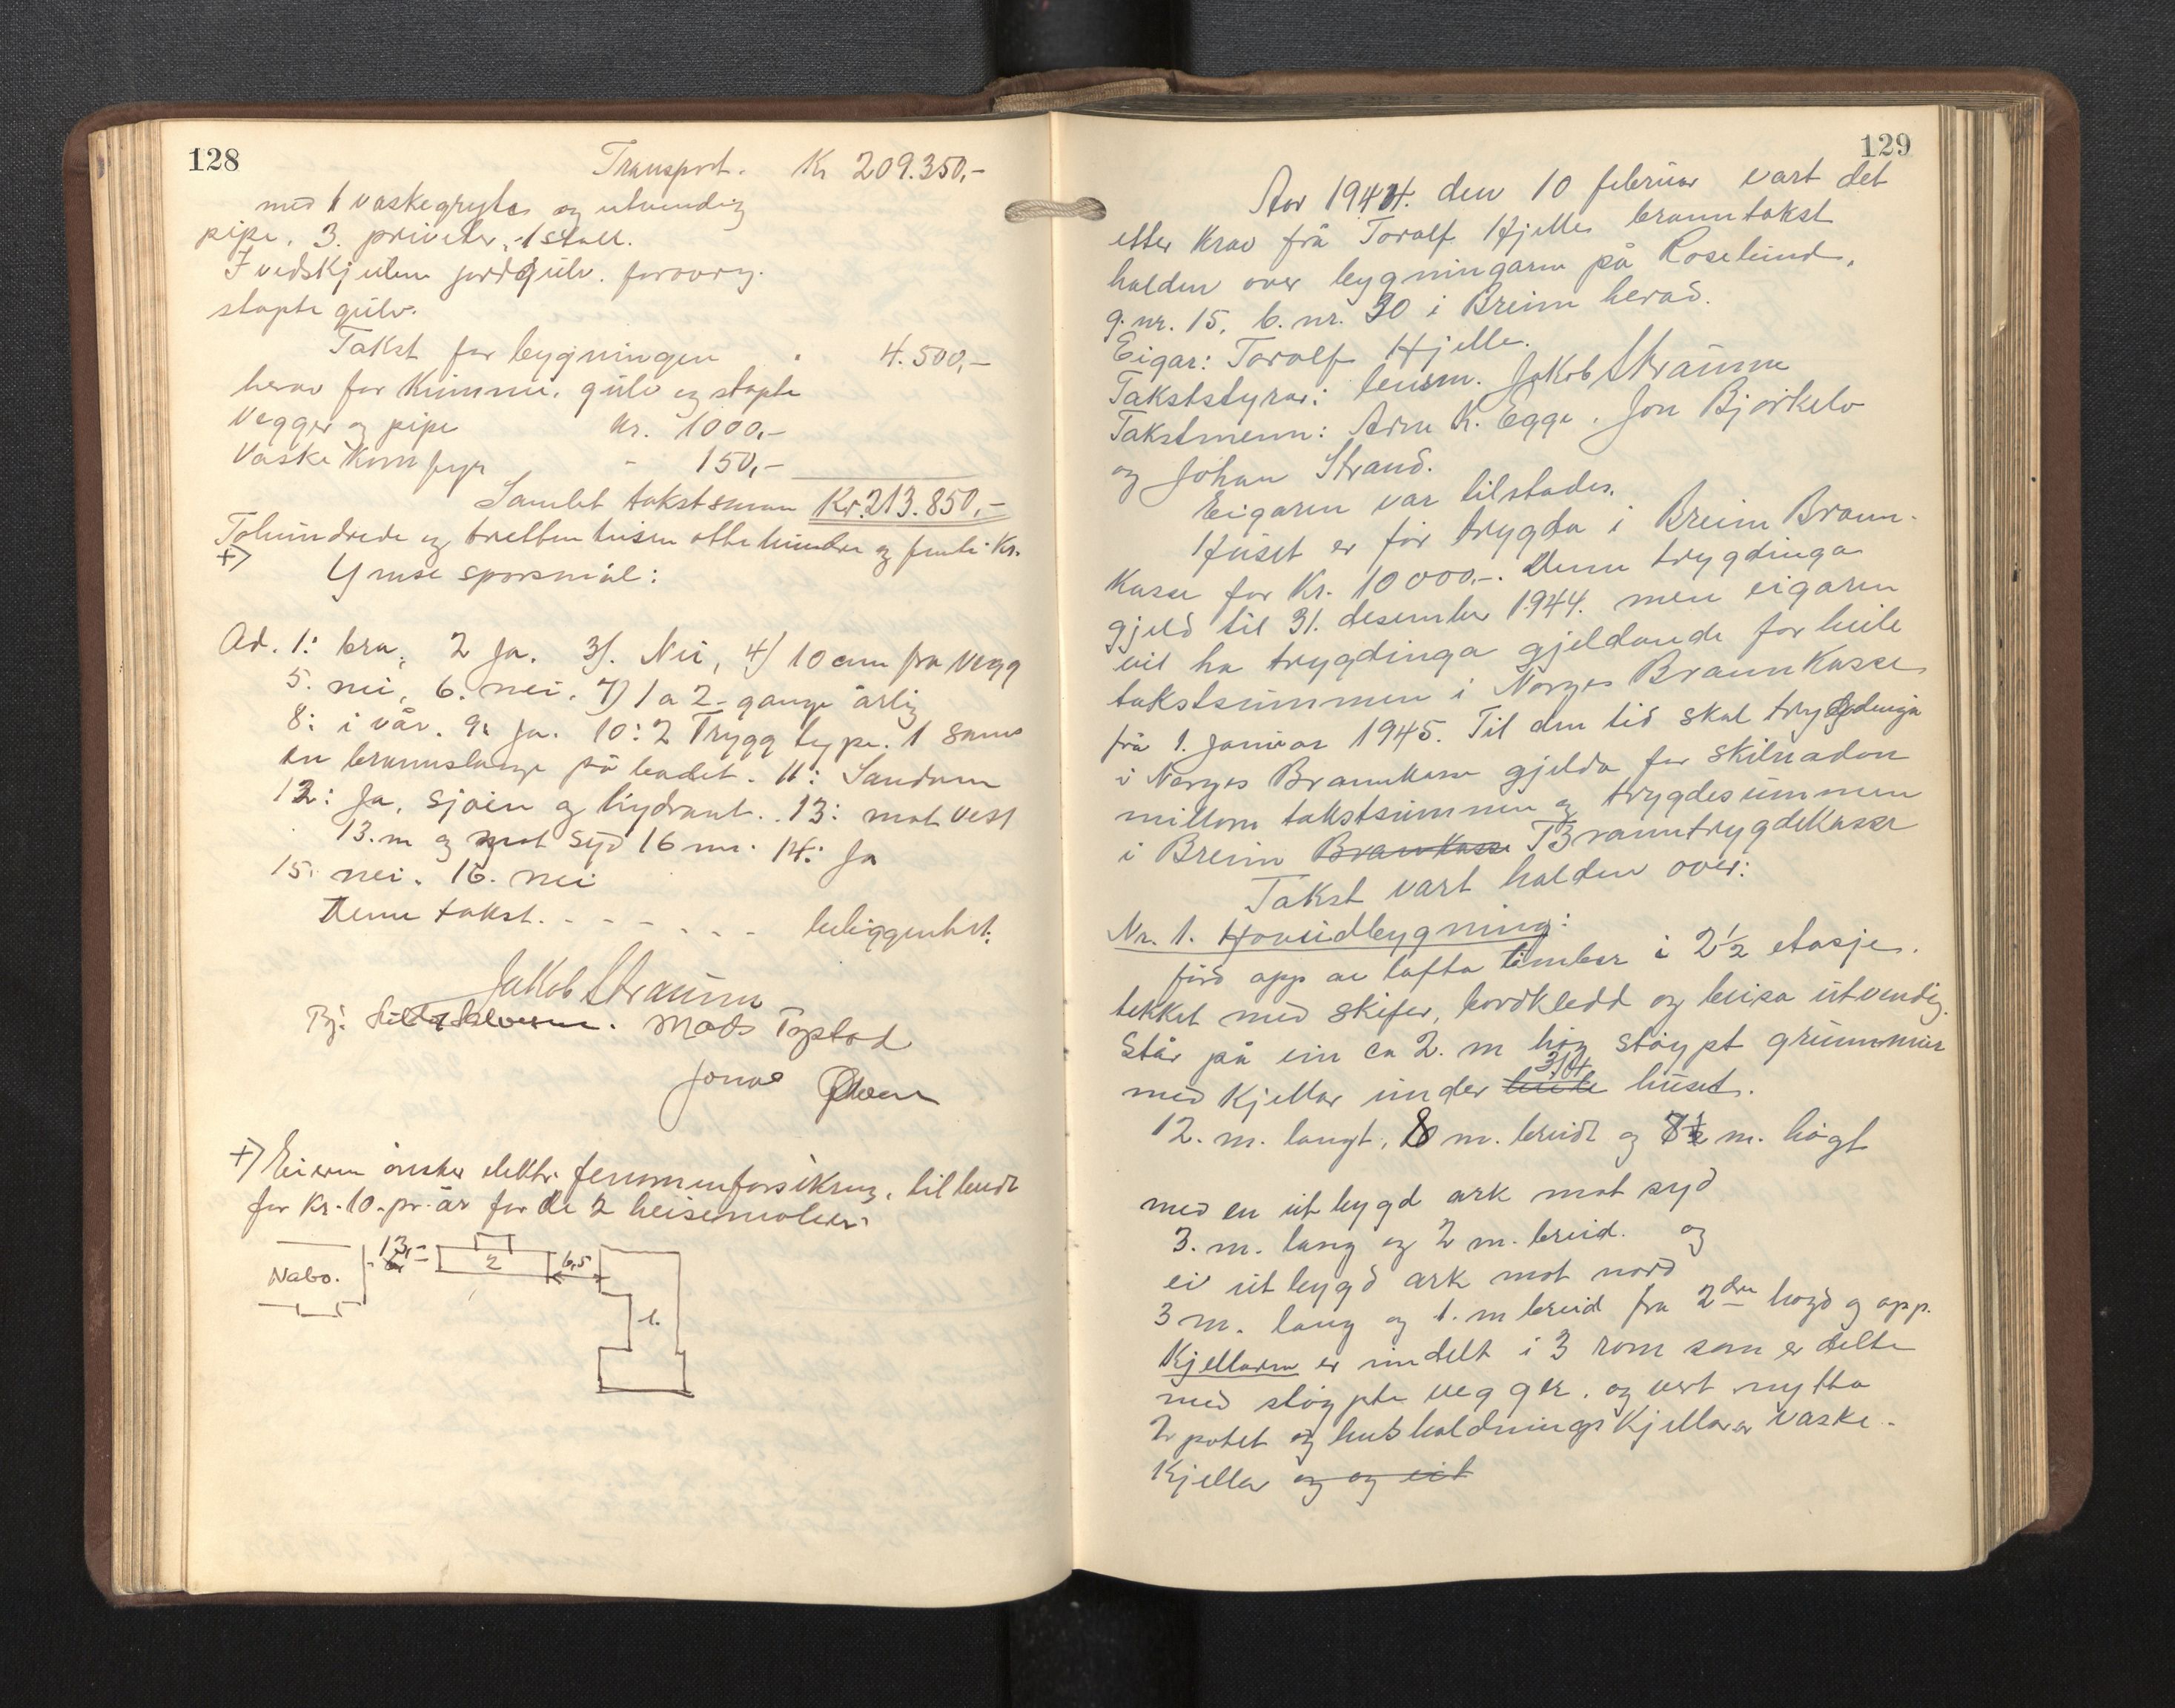 128
Transport. Kr 209.350,-
med 1 vaskegryte og utvendig
pipe. 3. priveter, 1 stall.
I vedskjulen jordgulv. forøvrig
støpte gulv.
Takst for bygningen 4.500,-
herav for kummur, gulv og støpte
vegger og pipe Kr. 1000.-
Vaskekomfyr - 150,-
Samlet takstsum Kr. 213.850,-
Tohundrede og tretten tusen otte hundre og femti Kr.
+) Ymse spørsmål:
Ad. 1: bra, 2 Ja. 3). Nei, 4) 10 cm fra vegg
5. nei, 6. nei. 7) 1 a 2 gange årlig
8: i vår. 9: Ja. 10: 2 Trygg type. 1 samt
en brannslange på loftet. 11: Sandane
12: Ja, sjøen og hydrant. 13: mot vest
13. m og mot syd 16 m. 14: Ja
15. nei. 16. nei
Denne takst. - - - - - - beliggenhet.
Jakob Straume
Mads Tystad
Jonas
+) Eieren ønsker elektr. fenomenforsikring, tillegg
for kr. 10. pr. år for de 2 heisemotorer
Nabo. 13,- 2 6,5
1.
129
Aar 1944. den 10 februar vart det
etter krav frå Toralf Hjelle branntakst
halden over bygningarne på Roselund,
g.nr. 15, b.nr. 30 i Breim herad.
Eigar: Toralf Hjelle.
Takststyrar: lensm. Jakob Straume
Takstmenn: Arne K. Egge, Jon Bjørkelo
og Johan Strand.
Eigaren var tilstades.
Huset er før trygda i Breim Brann-
kasse for Kr. 10000.-. Denne trygdinga
gjeld til 31. desember 1944. men eigaren
vil ha trygdinga gjeldande for heile
takstsummen i Norges Brannkasse
frå 1. januar 1945. Til den tid skal trygdinga
i Norges Brannkasse gjelda for skilnaden
millom takstsummen og trygdesummen
i Breim Brannkasse Branntrygdekasse
Takst vart halden over:
Nr. 1. Hovudbygning:
förd opp av lafta timber i 2½ etasje.
tekket med skifer, bordkledd og beisa utvendig.
Står på ein ca 2. m høg støypt grunnmur
3/4
med kjellar under heile huset.
12. m. langt, 8 m. breidt og 8½ m. høgt
med en utbygd ark mot syd
3. m. lang og 2 m. breid. og
ei utbygd ark mot nord
3 m. lang og 1. m breid fra 2dre høgd og opp.
Kjellaren er inndelt i 3 rom som er delte
med støypte vegger. og vert nytta
2 potet og husholdningskjellarar vaske-
kjellar og og eit